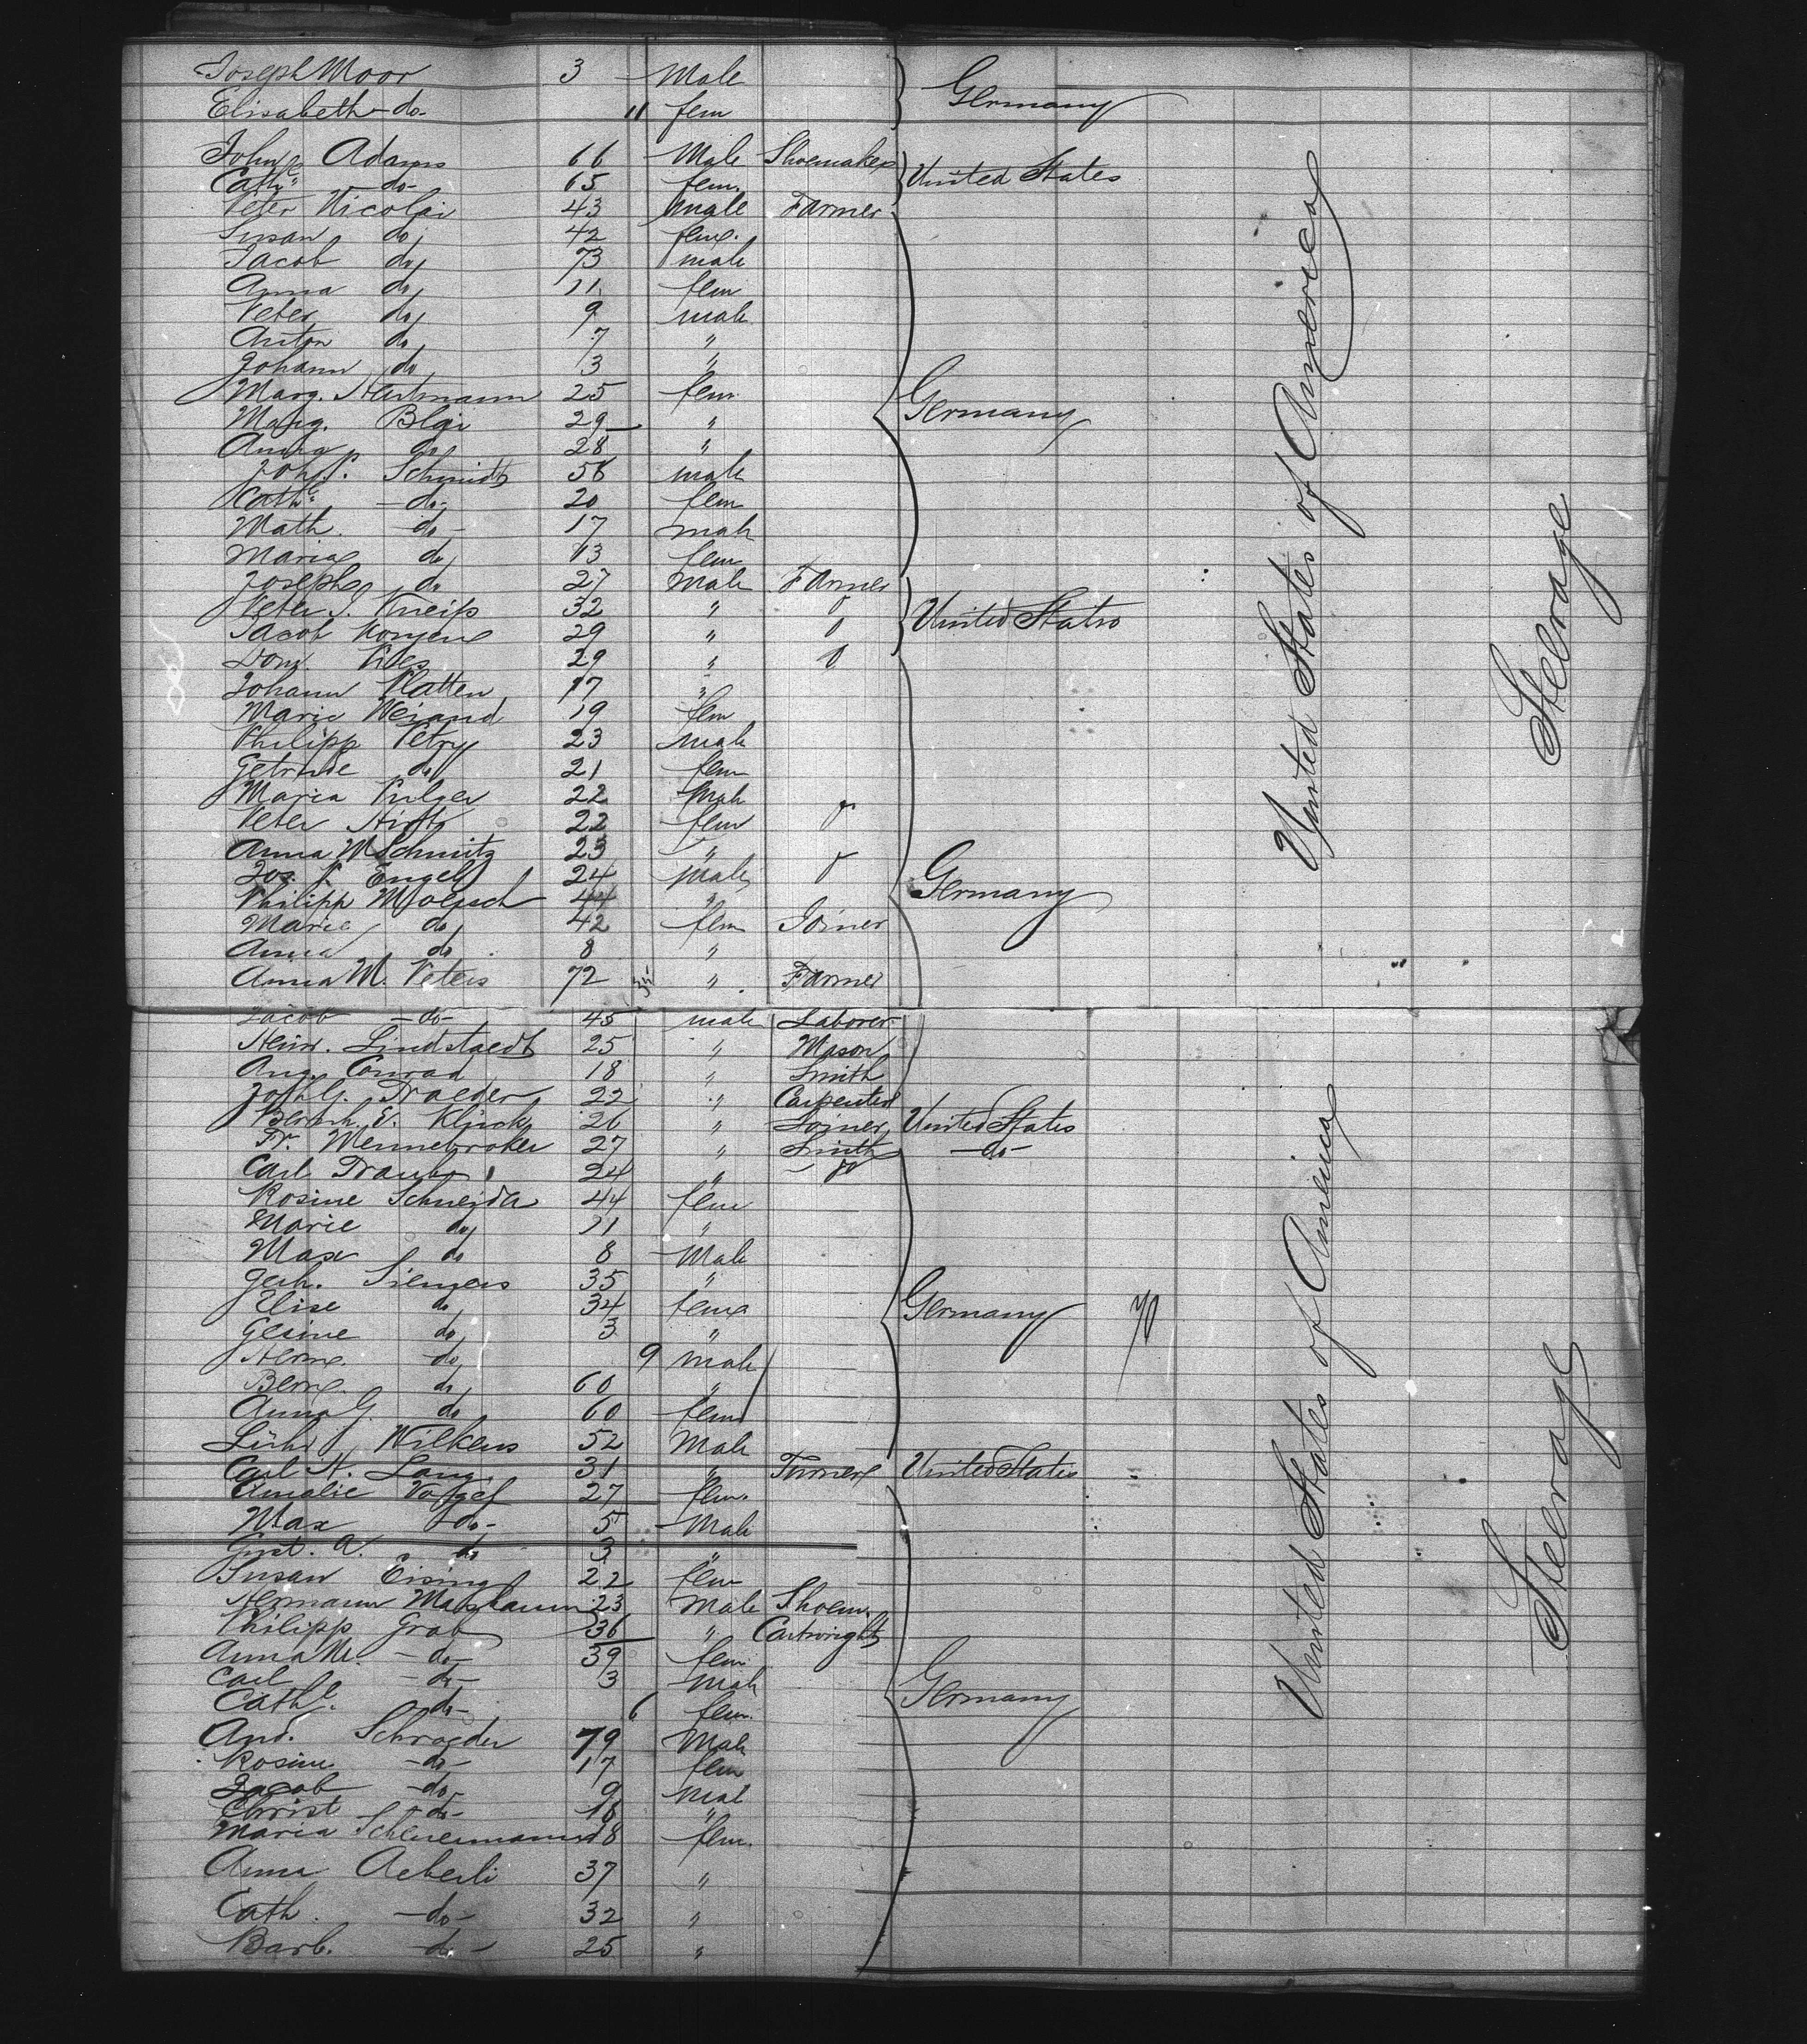 Joseph Moor 3 Male
Elisabeth do- 11 fem Germany
John Adams 66 Male Shoemaker
Cathe do- 65 fem. United States
Peter Nicolai 43 male Farmer
Susan do 42 fem.
Jacob do 73 male
Anna do 11 fem
Peter do 9 male
Anton do 7 "
Johann do 3 "
Marg. Hartmann 25 fem Germany
Marg. 29 "
Anna do 28 "
Joh. P. Schmidt 56 male
Cathe -do- 20 fem
Math. -do- 17 male
Maria do 13 fem
Joseph do 27 Male Farmer
Peter J. Kneip 32 " United States
Jacob 29 "
Dom. 29 "
Johann Platten 17 "
Marie Weiand 19 fem
Philipp Petry 23 male
Getrude do 21 fem
Maria Pulger 22 Male
Peter 22 fem
Anna M Schmitz 23 "
Jos. P. Engel 24 Male Germany
Philipp 44 "
Marie do 42 fem Joiner
Anna do 8 "
Anna M. Peters 72 " Farmer
United States of America
Steerage
Jacob -do- 45 male Laborer
Heinr. Lindstaedt 25 " Mason
Aug. Conrad 18 " Smith
Joh. G. Traeder 22 " Carpenter
Bernh. E. 26 " Joiner United States
Fr. Mennebroker 27 " Smith -do-
Carl Traub 24 "
Rosine Schneider 44 fem
Marie do 11 "
Max do 8 Male
Gerh. Siemers 35 "
Elise do 34 fem Germany
Gesine do 3 "
Herm. do 9 male
Bern. do 60 "
Anna G. do 60 fem
Lühr Wilkens 52 Male
Carl H. Lang 31 " Turner United States
Amalie Vogel 27 fem.
Max -do- 5 Male
Gust. A. do 3 "
Susan Eising 22 fem
Hermann 23 Male Shoem.
Philipp Grab 36 " Cartwright
Anna M. -do- 39 fem
Carl -do- 3 male Germany
Cathe. do- 6 fem.
And. Schroeder 79 Male
Rosine -do- 17 fem
Jacob -do- 9 mal
Christ -do- 16 "
Maria Scheuermann 18 fem.
Anna Aeberli 37 "
Cath. -do- 32 "
Barb. -do- 25 "
United States of America
Steerage